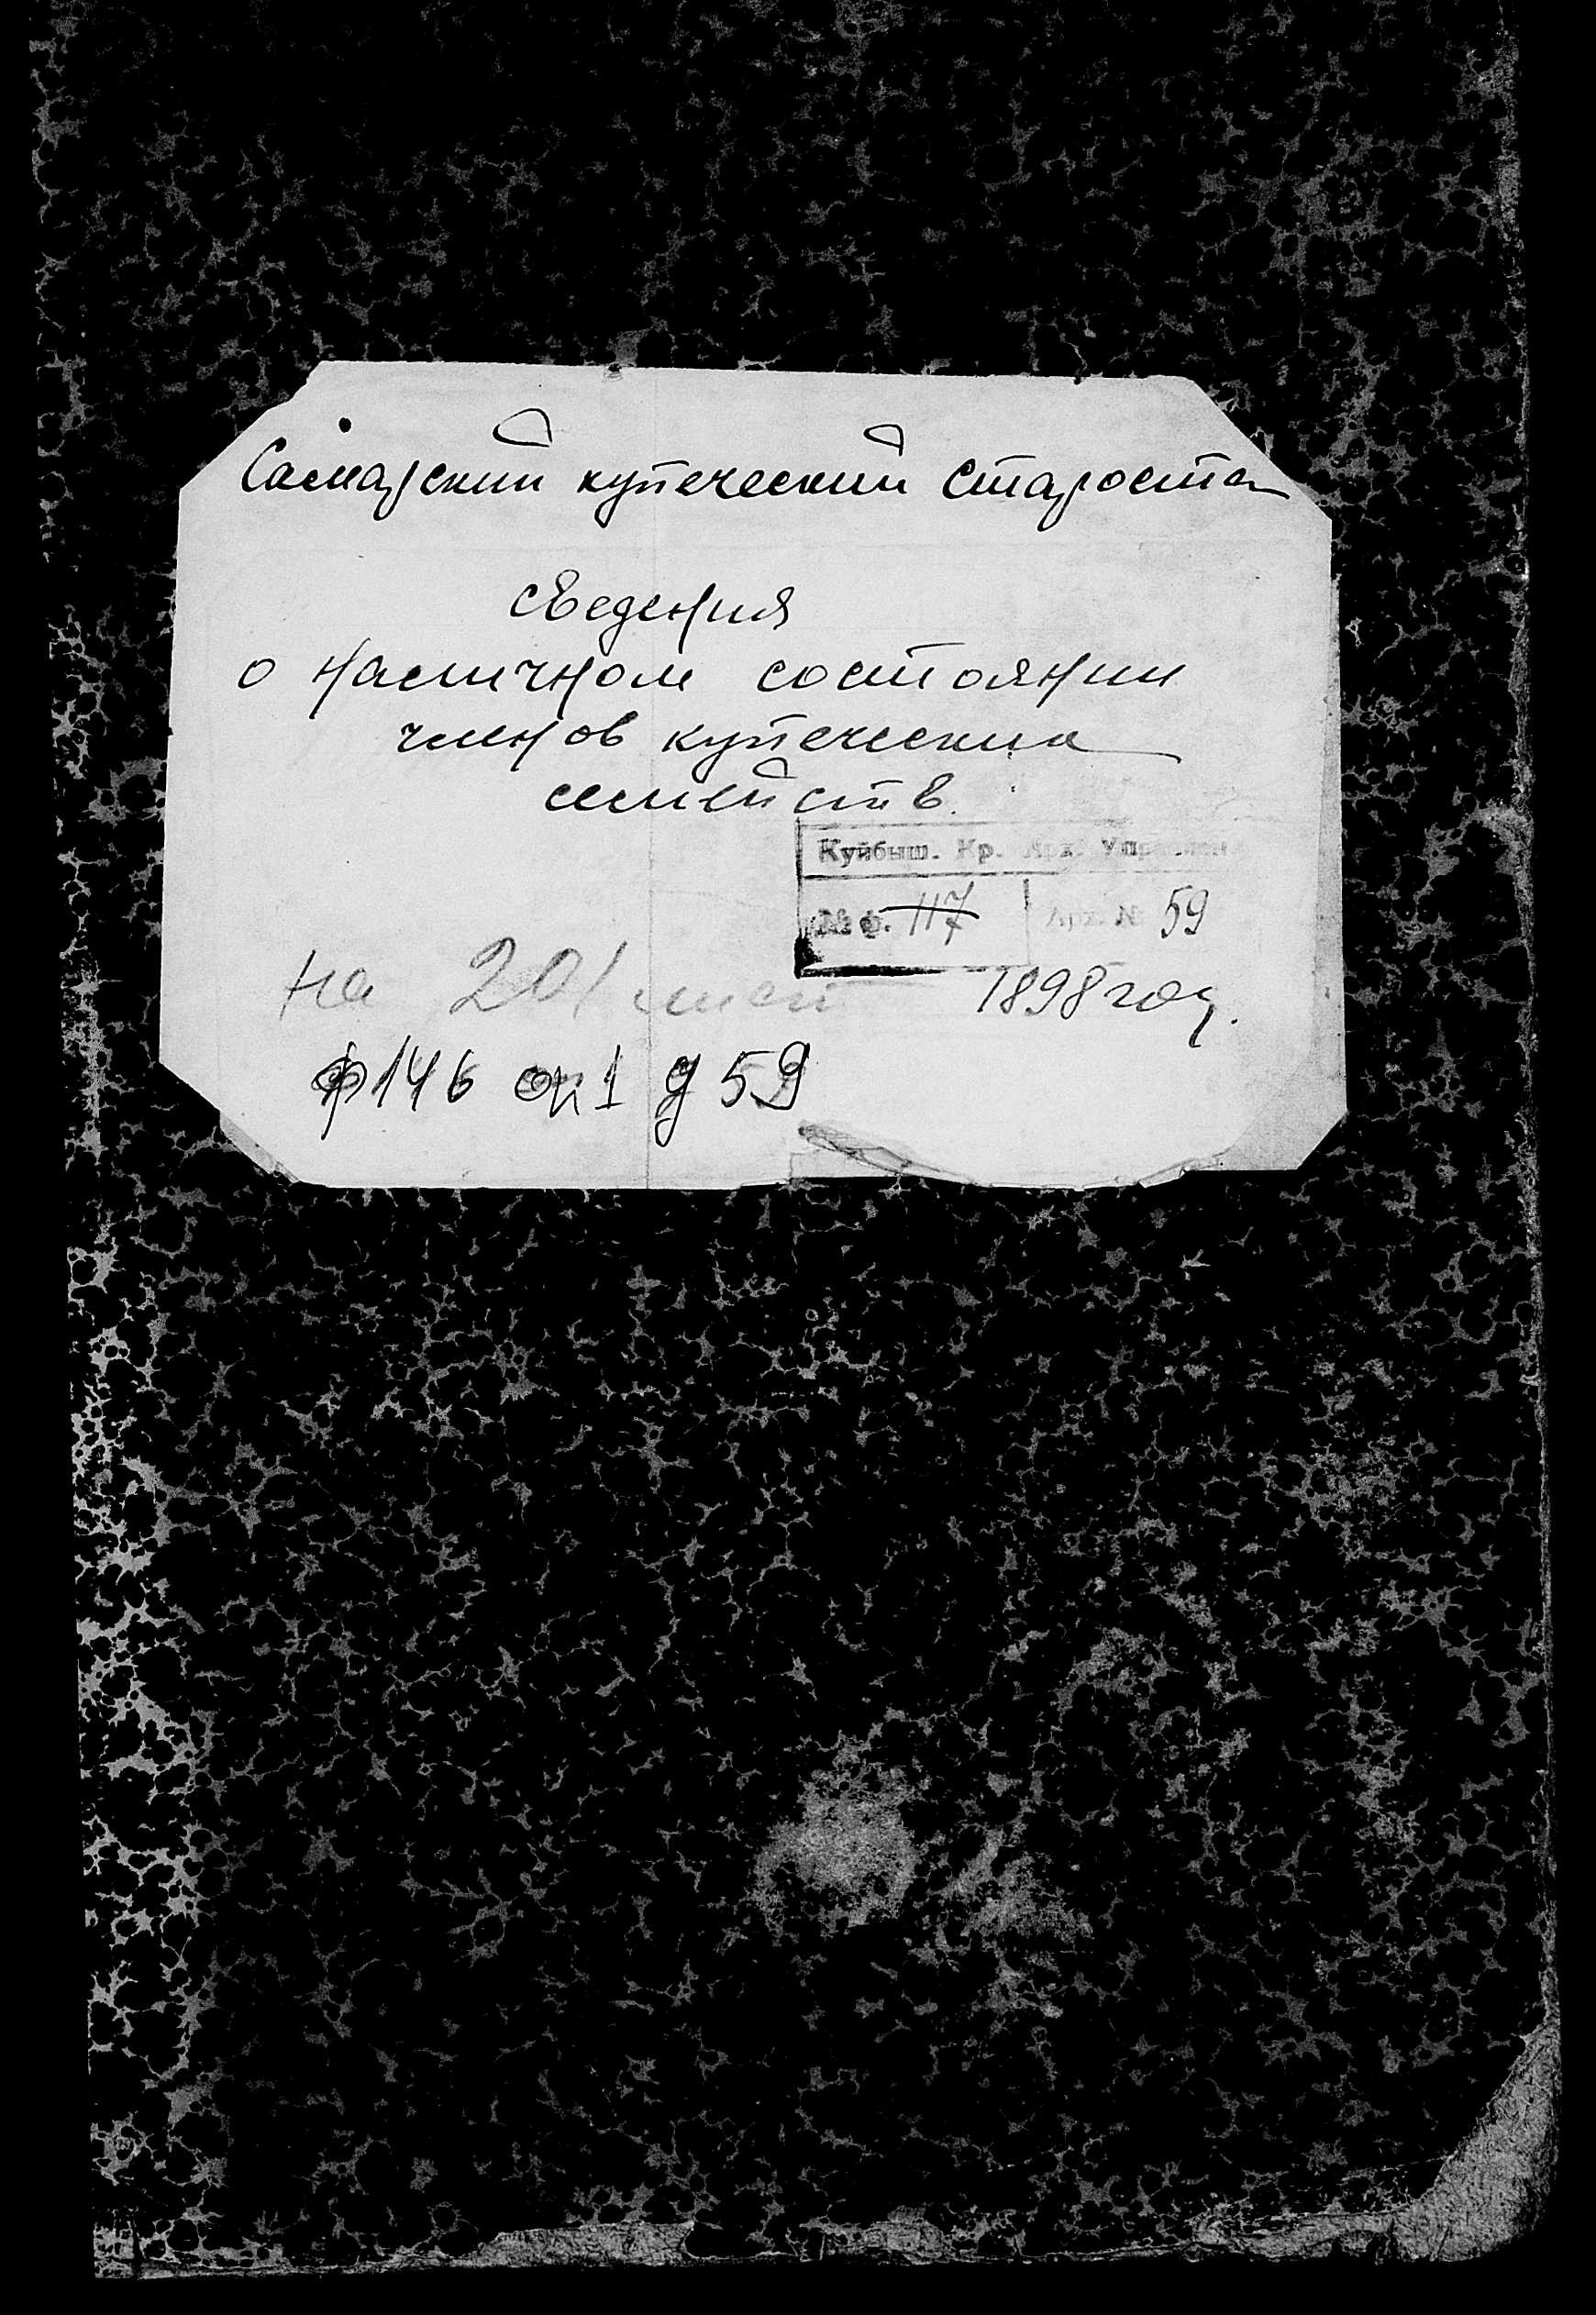 Самарский купеческий староста
сведения
о наличном состоянии
членов купеческих
семейств.
Куйбыш. Кр. Арх. Управлен
№ ф. 117 Арх. № 59
на 201 лист
1898 год.
ф 146 оп 1 д 59